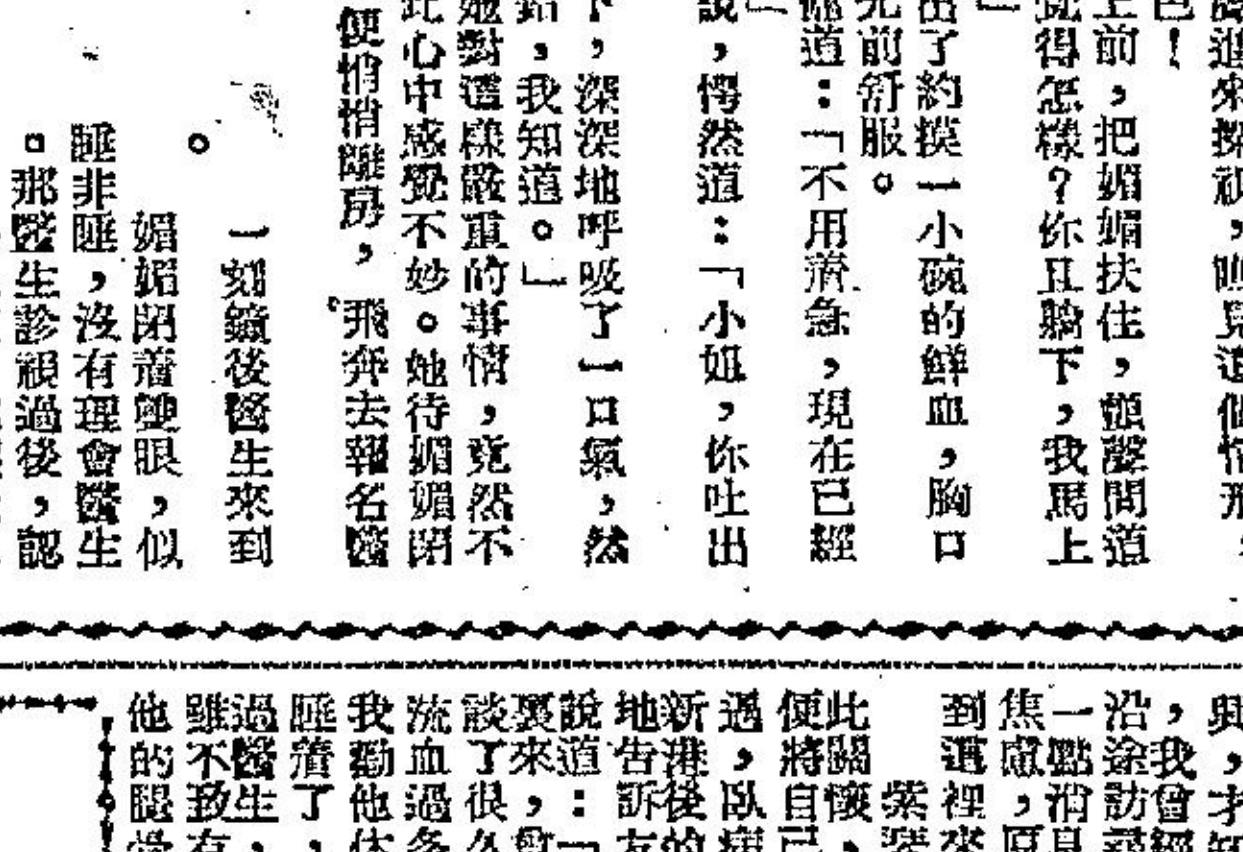 進來探視，瞧見這個情形，
色！
上前，把媚媚扶住，顫聲問道
覺得怎樣？你且躺下，我馬上
」
出了約摸一小碗的鮮血，胸口
先前舒服。
道：「不用着急，現在已經
」
說，愕然道：「小姐，你吐出
下，深深地呼吸了一口氣，然
，我知道。」
她對這樣嚴重的事情，竟然不
此心中感覺不妙。她待媚媚閉
便悄悄離房，飛奔去報名醫
一刻鐘後醫生來到
。
媚媚閉着雙眼，似
睡非睡，沒有理會醫生
。那醫生診視過後，認
與，才知
，我曾經
沿途訪尋
一點消息
焦慮，原
到這裡來
紫
此關懷，
便將自己
遇，臥病
新港後的
地告訴友
說道：「
裏來，
談了很久
流血過多
我勸他休
睡着了，
過醫生，
雖不致有
他的腿受